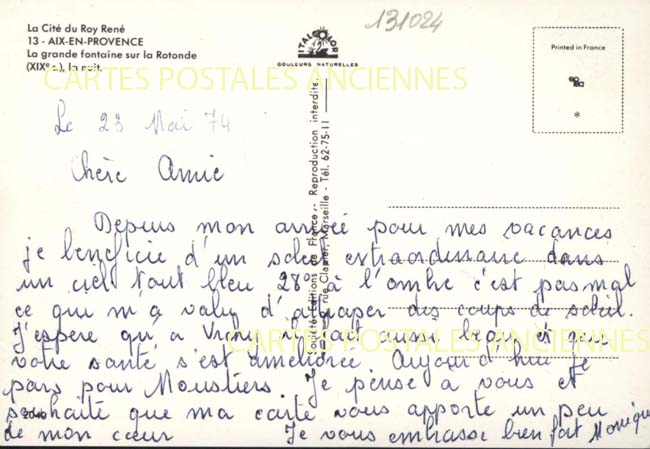 La Cité du Roy René
13 - AIX-EN-PROVENCE
La grande fontaine sur la Rotonde
(XIXe s.), la nuit.
131024
ITALCOLOR
COULEURS NATURELLES
Printed in France
*
CARTES POSTALES ANCIENNES
Société Editions de France - Reproduction interdite
rue Clapier, Marseille - Tél. 62-75-11
Le 23 Mai 74
Chère Amie
Depuis mon arrivée pour mes vacances
je bénéficie d'un soleil extraordinaire dans
un ciel tout bleu 28° à l'ombre c'est pas mal
ce qui m'a valu d'attraper des coups de soleil.
J'espère qu'a il fait aussi beau et que
CARTES POSTALES ANCIENNES
votre santé s'est améliorée. Aujourd'hui je
pars pour Moustiers. Je pense a vous et
souhaite que ma carte vous apporte un peu
2040
de mon cœur Je vous embrasse bien fort Monique